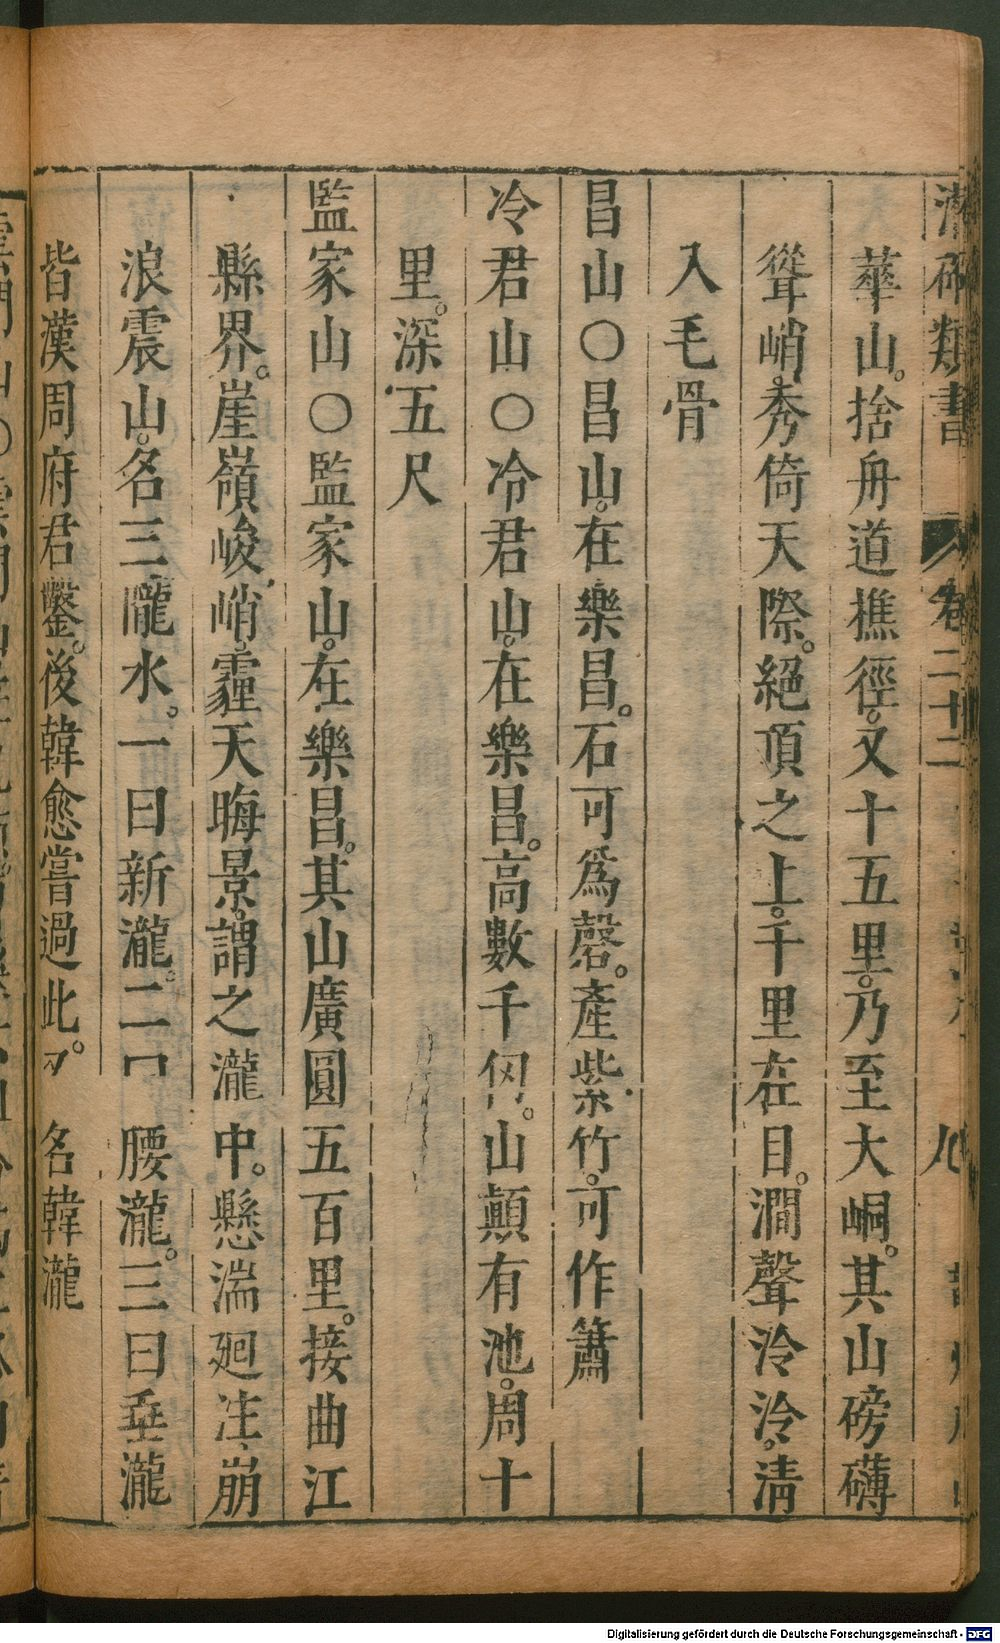 潛確類書 卷二十二 九
華山。捨舟道樵徑。又十五里。乃至大峒。其山磅礴
聳峭。秀倚天際。絕頂之上。千里在目。澗聲泠泠。清
入毛骨
昌山〇昌山。在樂昌。石可爲磬。產紫竹。可作簫
冷君山〇冷君山。在樂昌。高數千仞。山顛有池。周十
里。深五尺
監家山〇監家山。在樂昌。其山廣圓五百里。接曲江
縣界。崖嶺峻峭。霾天晦景。謂之瀧中。懸湍廻注。崩
浪震山。名三瀧水。一曰新瀧。二曰腰瀧。三曰垂瀧
皆漢周府君鑿。後韓愈嘗過此。又名韓瀧
Digitalisierung gefördert durch die Deutsche Forschungsgemeinschaft - DFG